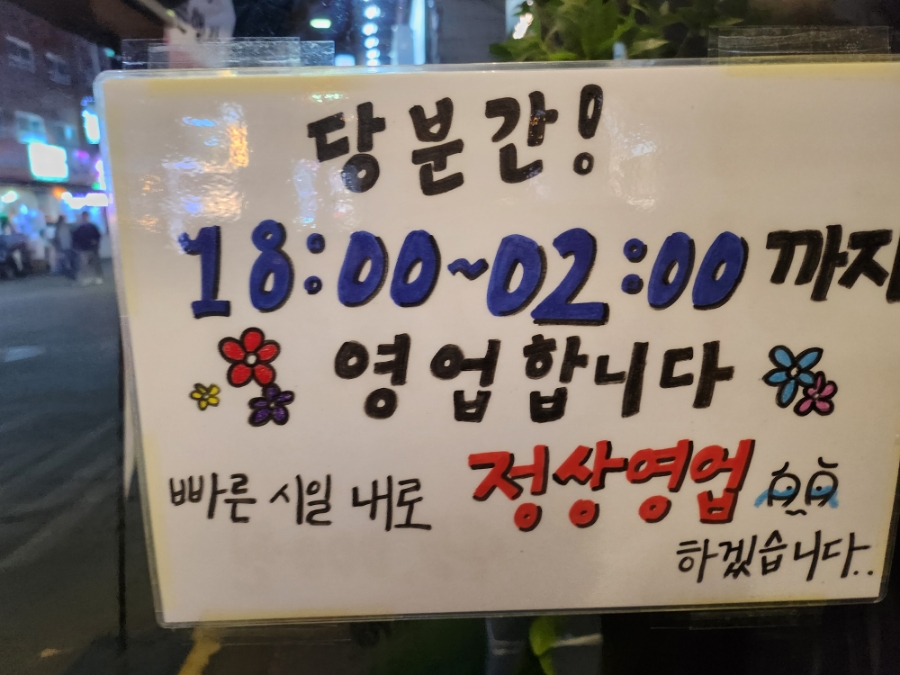 당분간!
18:00~02:00 까지
영업합니다
빠른 시일 내로 정상영업
하겠습니다..